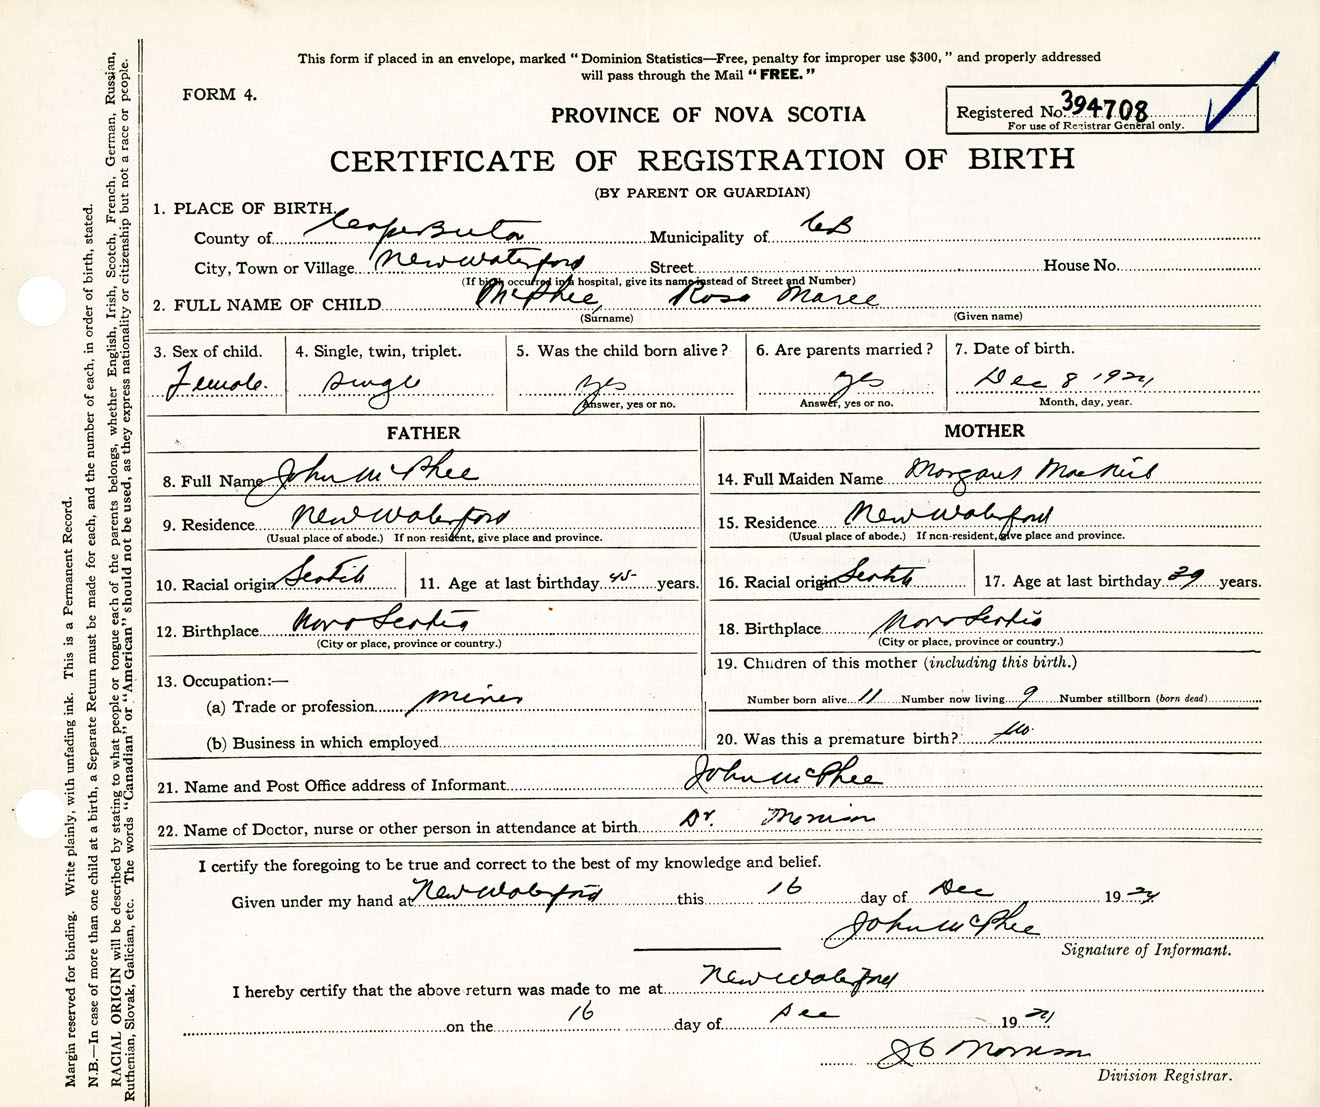 This form if placed in an envelope, marked “Dominion Statistics—Free, penalty for improper use $300,” and properly addressed
will pass through the Mail “FREE.”
FORM 4.
PROVINCE OF NOVA SCOTIA
Registered No. 394708
For use of Registrar General only.
CERTIFICATE OF REGISTRATION OF BIRTH
(BY PARENT OR GUARDIAN)
1. PLACE OF BIRTH.
County of Cape Breton Municipality of CB
City, Town or Village New Waterford Street House No.
(If birth occurred in a hospital, give its name instead of Street and Number)
2. FULL NAME OF CHILD McPhee, Rosa Maree
(Surname) (Given name)
3. Sex of child. 4. Single, twin, triplet. 5. Was the child born alive? 6. Are parents married? 7. Date of birth.
Female. single yes yes Dec 8
Answer, yes or no. Answer, yes or no. Month, day, year.
FATHER MOTHER
8. Full Name John McPhee 14. Full Maiden Name Margaret MacNeil
9. Residence New Waterford 15. Residence New Waterford
(Usual place of abode.) If non resident, give place and province. (Usual place of abode.) If non-resident, give place and province.
10. Racial origin Scotch 11. Age at last birthday 45 years. 16. Racial origin Scotch 17. Age at last birthday 39 years.
12. Birthplace Nova Scotia 18. Birthplace Nova Scotia
(City or place, province or country.) (City or place, province or country.)
13. Occupation:— 19. Children of this mother (including this birth.)
(a) Trade or profession miner Number born alive 11 Number now living 9 Number stillborn (born dead)
(b) Business in which employed 20. Was this a premature birth? no
21. Name and Post Office address of Informant John McPhee
22. Name of Doctor, nurse or other person in attendance at birth Dr. Morrison
I certify the foregoing to be true and correct to the best of my knowledge and belief.
Given under my hand at New Waterford this 16 day of Dec 19
John McPhee
Signature of Informant.
I hereby certify that the above return was made to me at New Waterford
on the 16 day of Dec 19
Morrison
Division Registrar.
Margin reserved for binding. Write plainly, with unfading ink. This is a Permanent Record.
N.B.—In case of more than one child at a birth, a Separate Return must be made for each, and the number of each, in order of birth, stated.
RACIAL ORIGIN will be described by stating to what people or tongue each of the parents belongs, whether English, Irish, Scotch, French, German, Russian,
Ruthenian, Slovak, Galician, etc. The words “Canadian” or “American” should not be used, as they express nationality or citizenship but not a race or people.